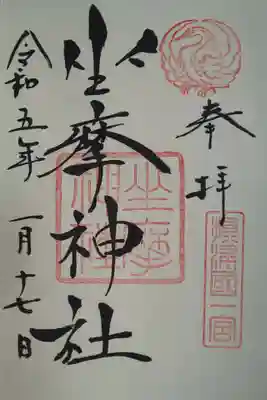 奉拝
摂津国一宮
坐摩神社
坐摩神社
令和五年一月十七日